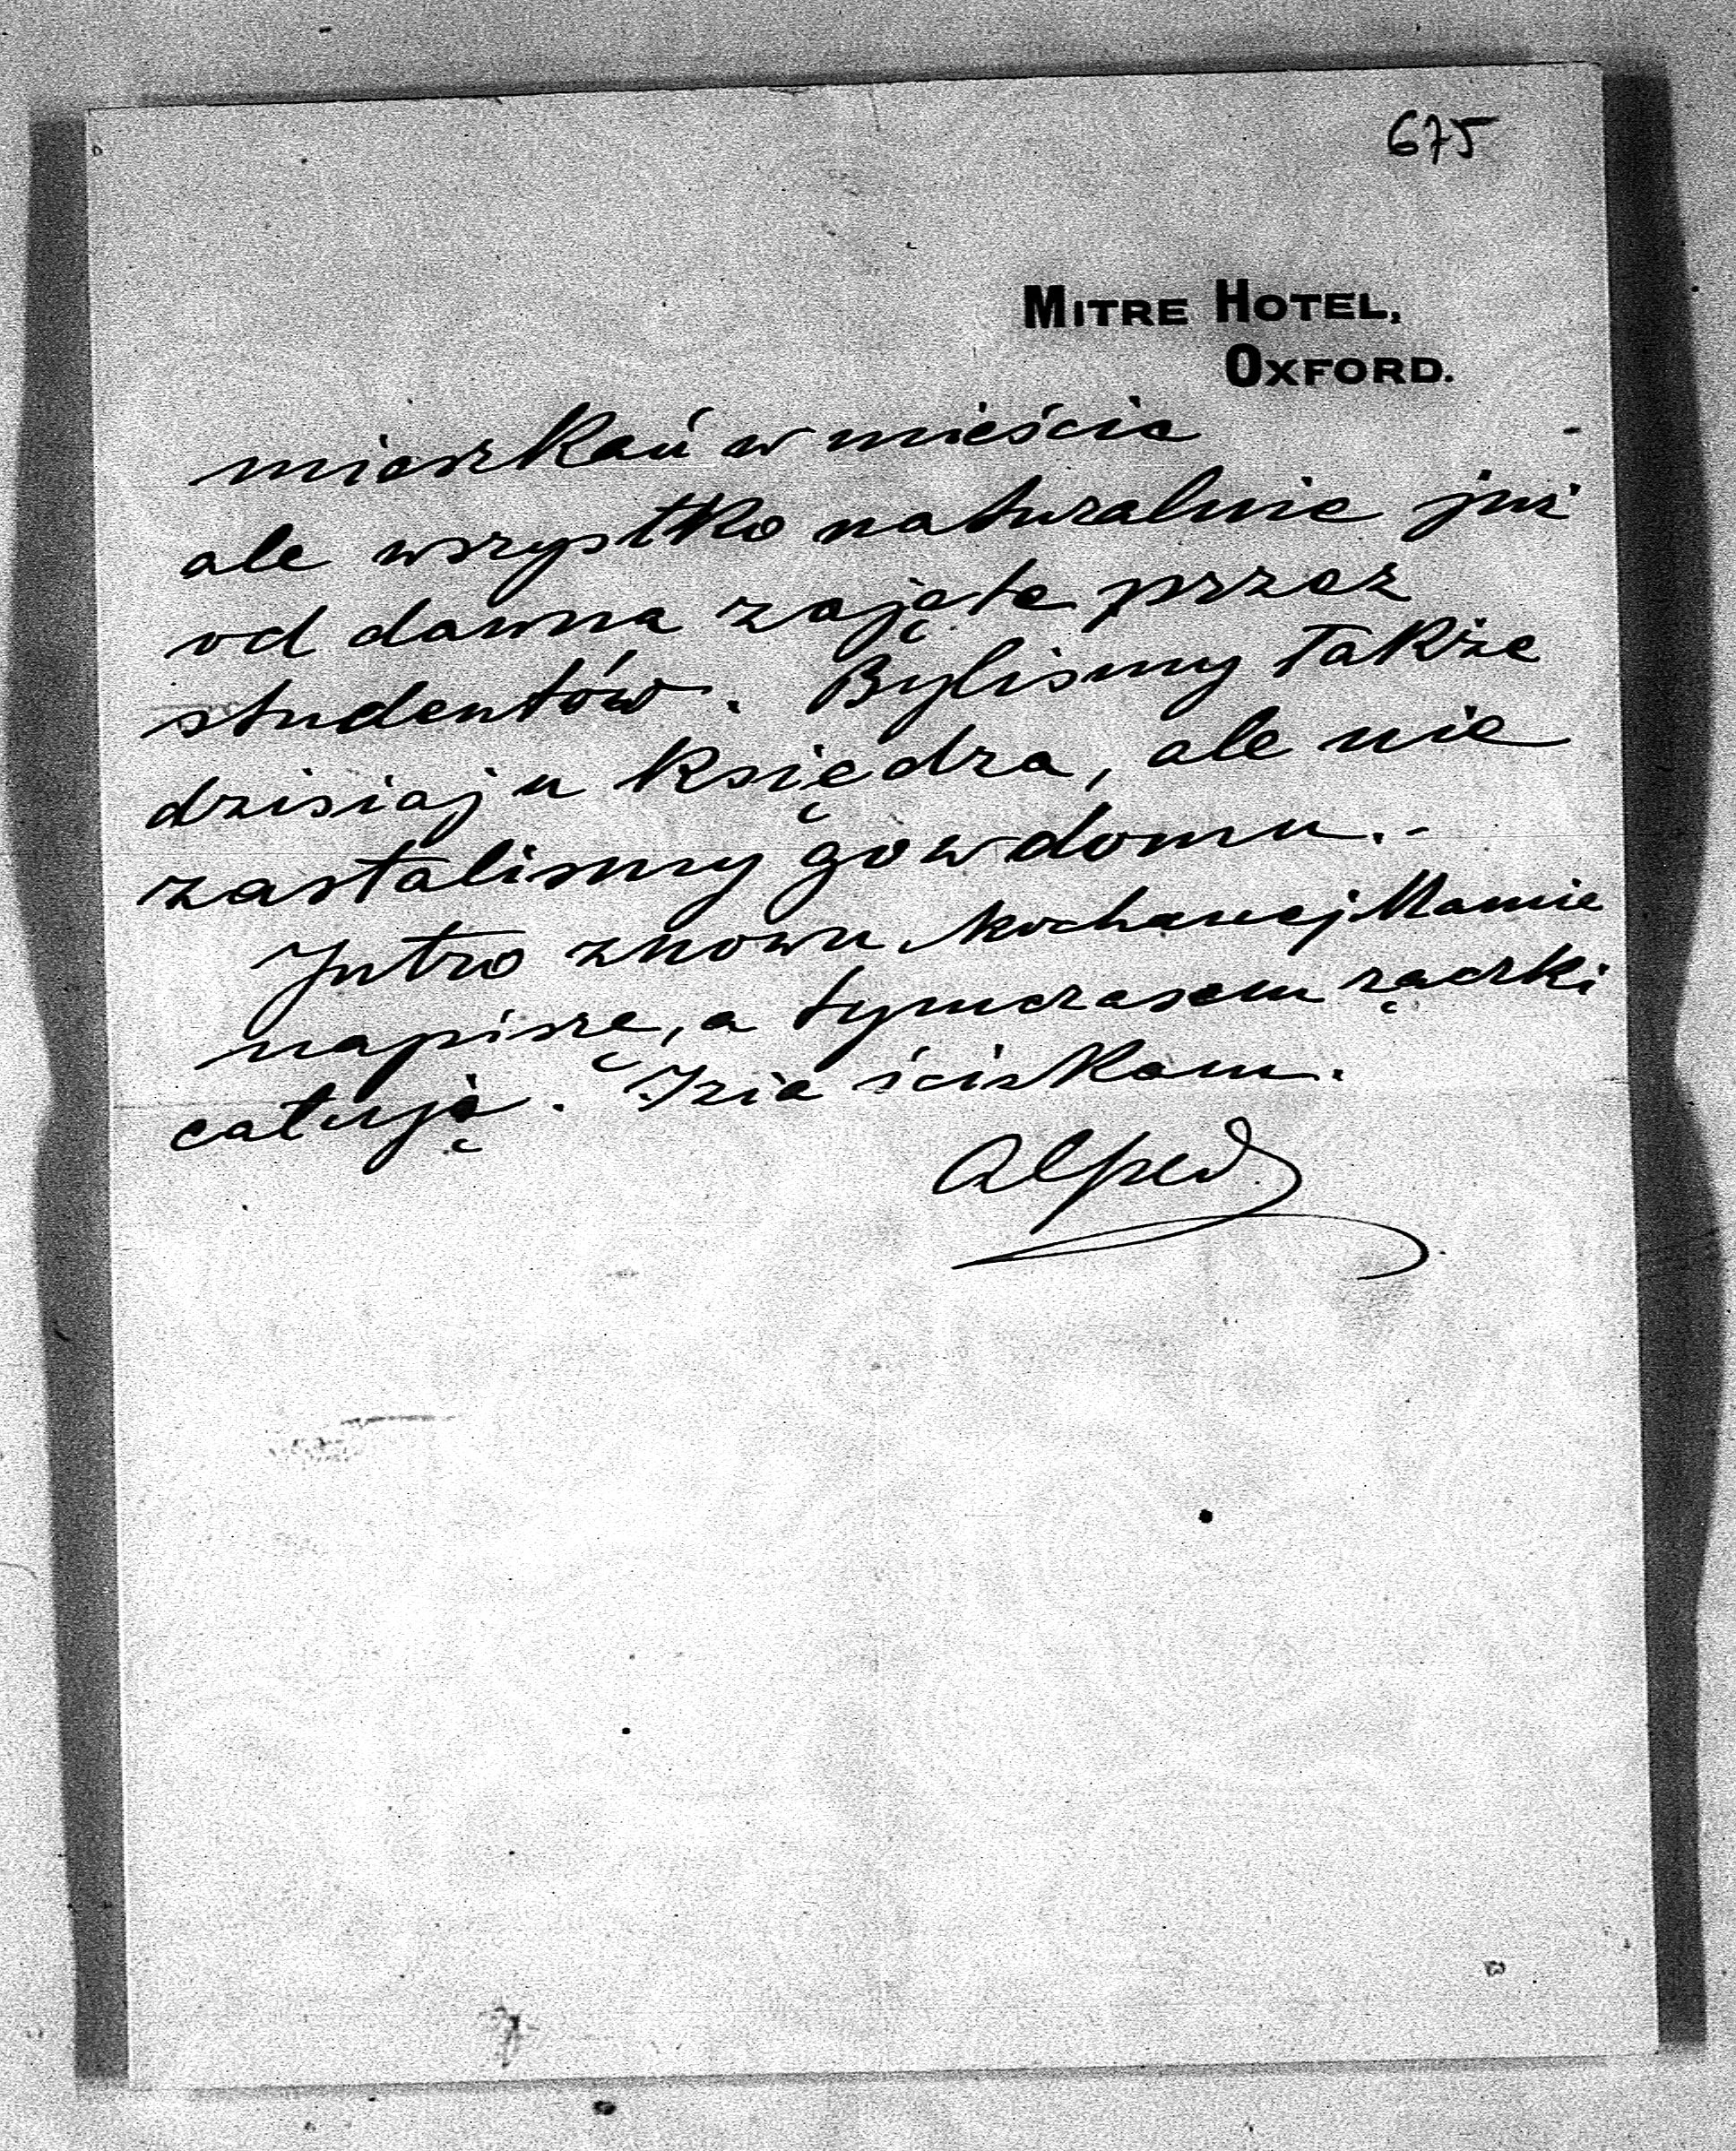 675
MITRE HOTEL,
OXFORD.
mieszkań w mieście
ale wszystko naturalnie już
od dawna zajęte przez
studentów. Byliśmy także
dzisiaj u księdza, ale nie
zastaliśmy go w domu. -
Jutro znowu kochanej Mamie
napiszę, a tymczasem rączki
całuję. Izię ściskam.
Alfred